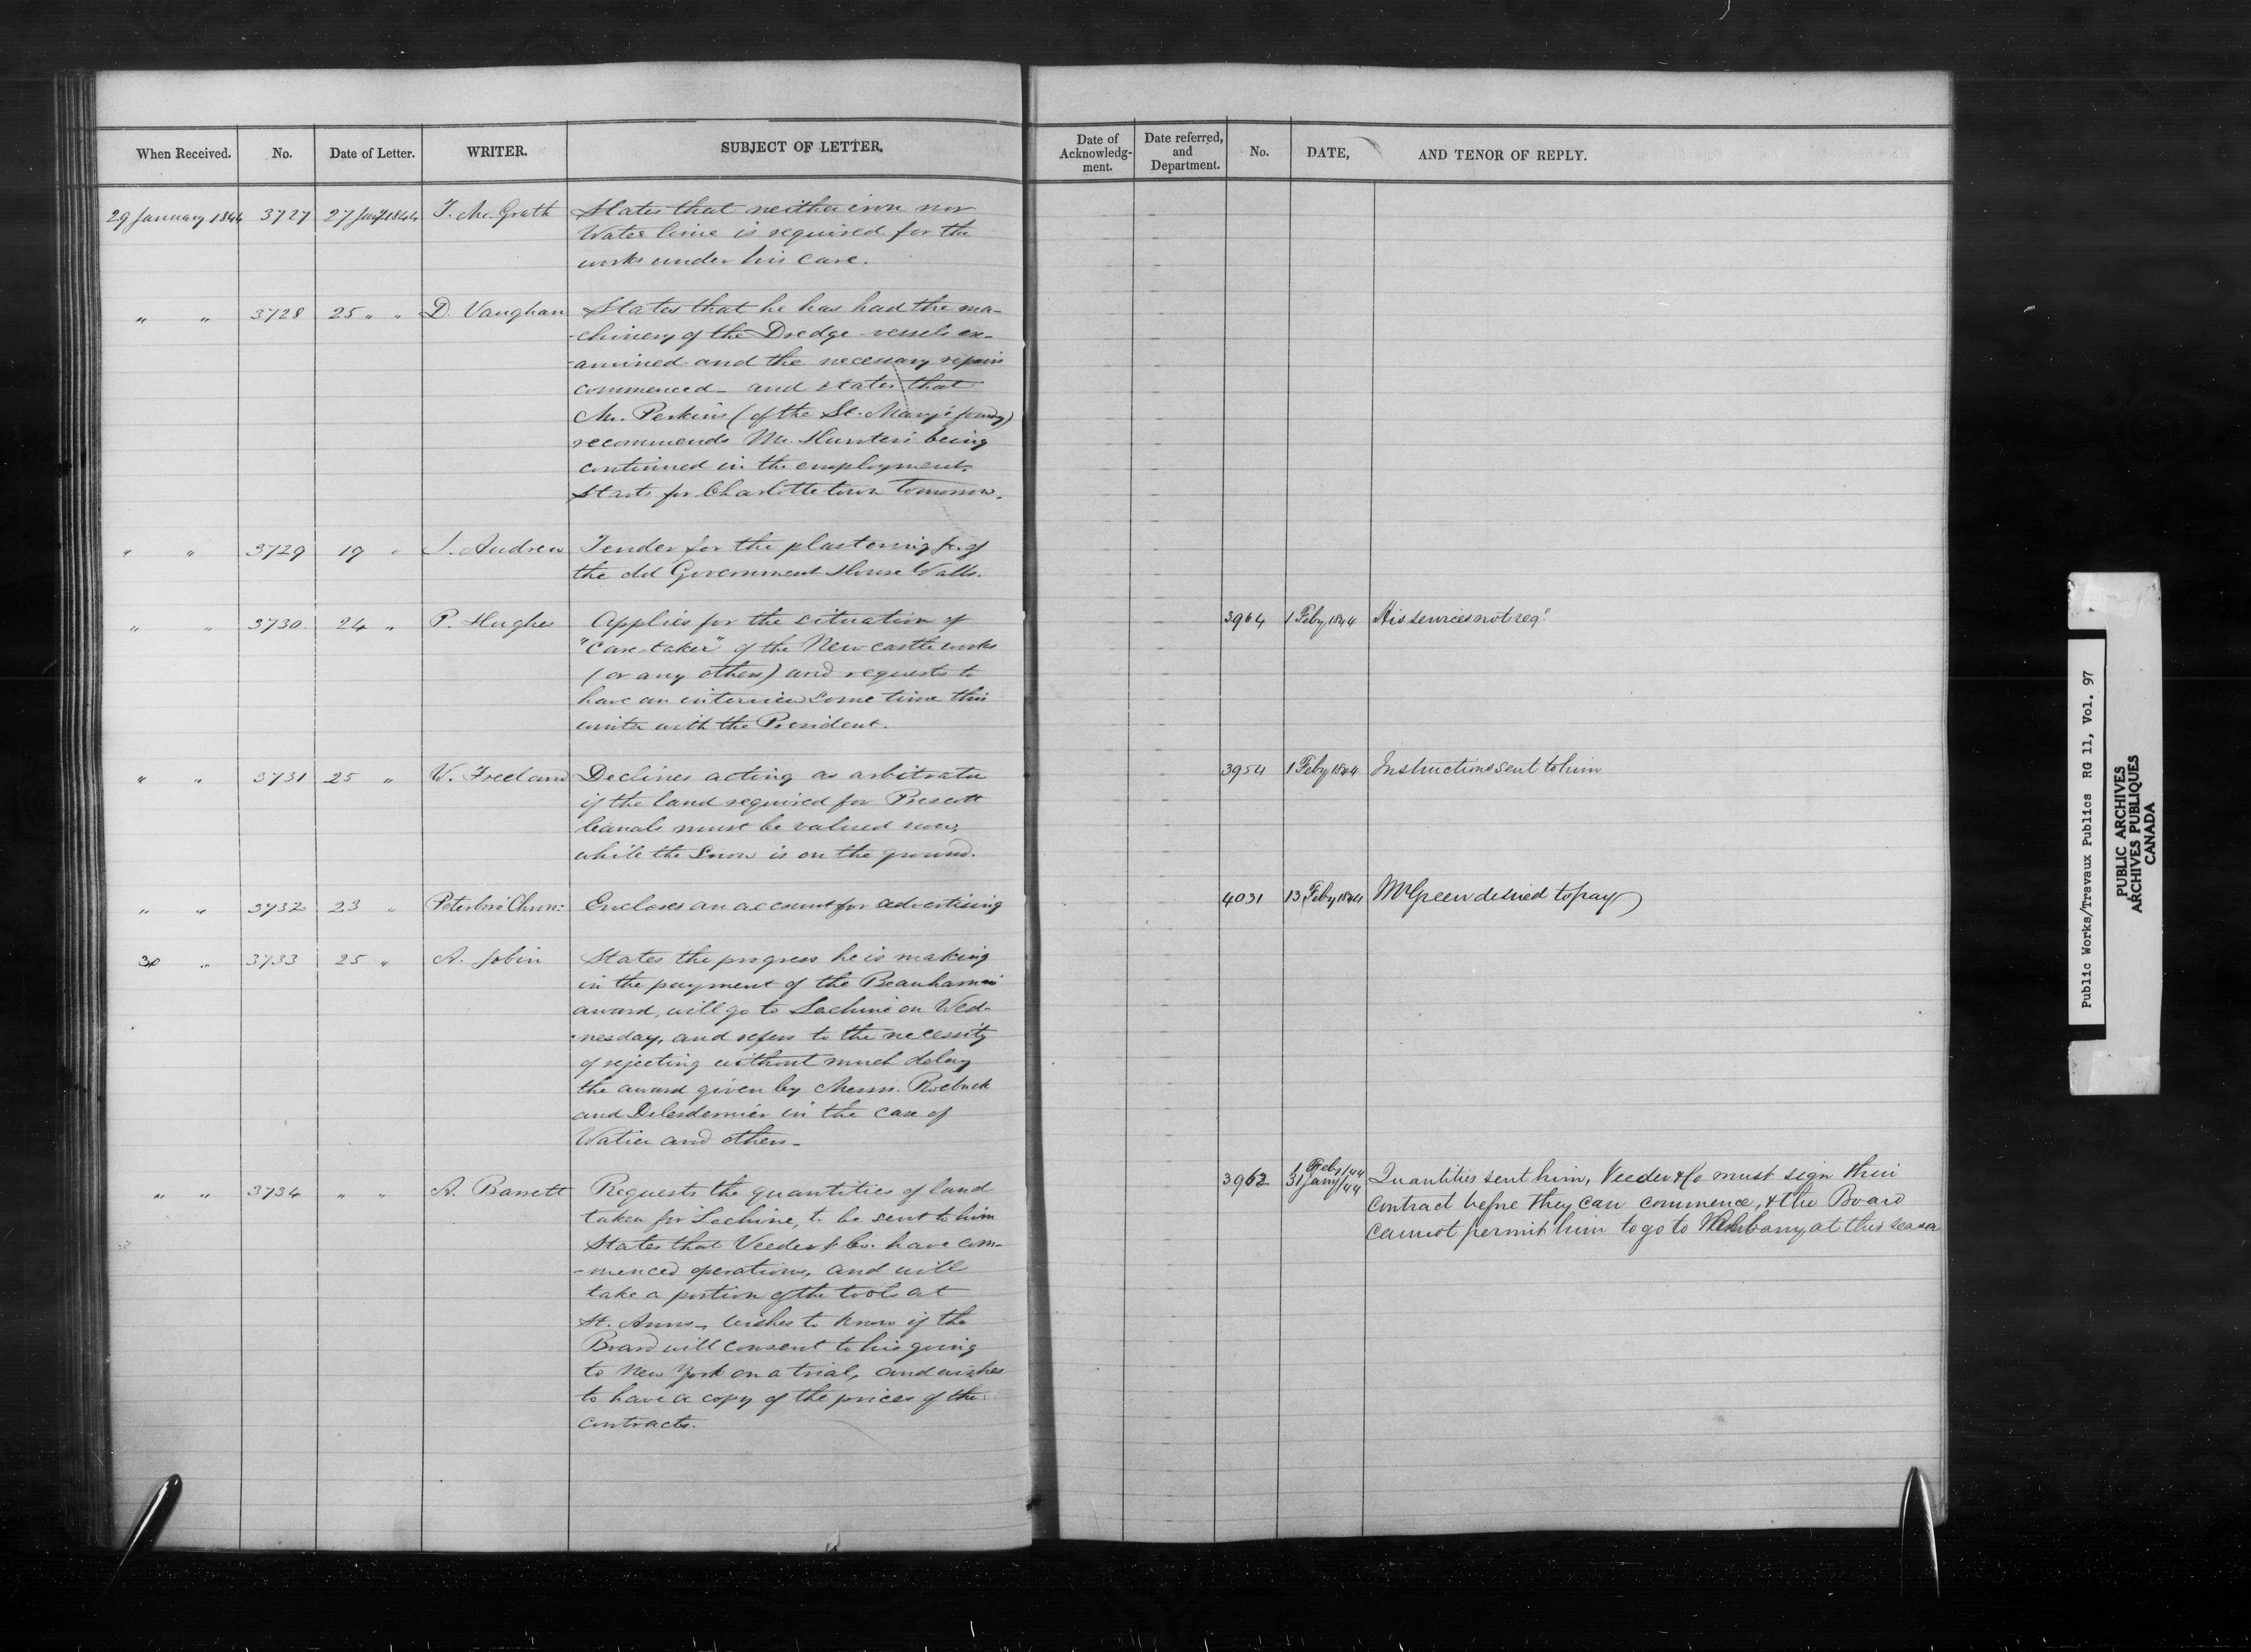 When Received. No. Date of Letter. WRITER. SUBJECT OF LETTER.
29 January 1844 3727 27 Jany 1844 T. Mc.Grath States that neither iron nor
Water lime is required for the
works under his care.
" " 3728 25 " " D. Vaughan States that he has had the ma-
-chinery of the Dredge vessels ex-
-amined and the necessary repairs
commenced - and states that
Mr. Perkins (of the St. Mary's foundry)
recommends Mr. Hunter's being
continued in the employment.
Starts for Charlotte town tomorrow.
" " 3729 19 " J. Andrew Tender for the plastering &c. of
the old Government House Walls.
" " 3730 24 " P. Hughes Applies for the situation of
"Care-taker" of the Newcastle works
(or any others) and requests to
have an interview some time this
winter with the President.
" " 3731 25 " W. Freeland Declines acting as arbitrator
if the land required for Prescott
Canals must be valued now,
while the Snow is on the ground.
" " 3732 23 " Peterboro' Chron: Encloses an account for advertising
30 " 3733 25 " A. Jobin States the progress he is making
in the payment of the Beauharnois
award, will go to Lachine on Wed-
-nesday, and refers to the necessity
of rejecting without much delay
the award given by Messrs. Roebuck
and Delesdernier in the case of
Watier and others -
" " 3734 " " A. Barrett Requests the quantities of land
taken for Lachine, to be sent to him
States that Veeder & Co. have com-
-menced operations, and will
take a portion of the tools at
St. Anns, wishes to know if the
Board will consent to his going
to New York on a trial, and wishes
to have a copy of the prices of the
contracts.
Date of Acknowledg-ment. Date referred, and Department. No. DATE, AND TENOR OF REPLY.
3964 1 Feby 1844 His services not reqd
3954 1 Feby 1844 Instructions sent to him
4031 13 Feby 1844 Mr Green desired to pay
3962 1 Feby/44
31 Jany/44 Quantities sent him, Veeder & Co must sign their
contract before they can commence, & the Board
cannot permit him to go to at this season
Public Works/Travaux Publics RG 11, Vol. 97
PUBLIC ARCHIVES
ARCHIVES PUBLIQUES
CANADA